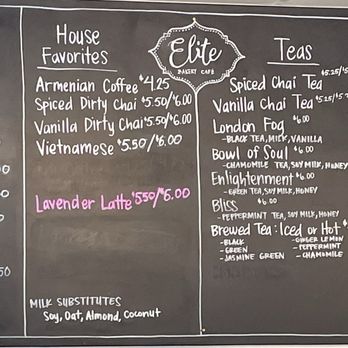 House
Favorites
Armenian Coffee $4.25
Spiced Dirty Chai $5.50/$6.00
Vanilla Dirty Chai $5.50/$6.00
Vietnamese $5.50/$6.00
Lavender Latte $5.50/$6.00
MILK SUBSTITUTES
Soy, Oat, Almond, Coconut
Elite
BAKERY CAFE
Teas
Spiced Chai Tea $5.25/
Vanilla Chai Tea $5.25/
London Fog $6.00
-BLACK TEA, MILK, VANILLA
Bowl of Soul $6.00
-CHAMOMILE TEA, SOY MILK, HONEY
Enlightenment $6.00
-GREEN TEA, SOY MILK, HONEY
Bliss $6.00
-PEPPERMINT TEA, SOY MILK, HONEY
Brewed Tea: Iced or Hot $
-BLACK -GINGER LEMON
-GREEN -PEPPERMINT
-JASMINE GREEN -CHAMOMILE